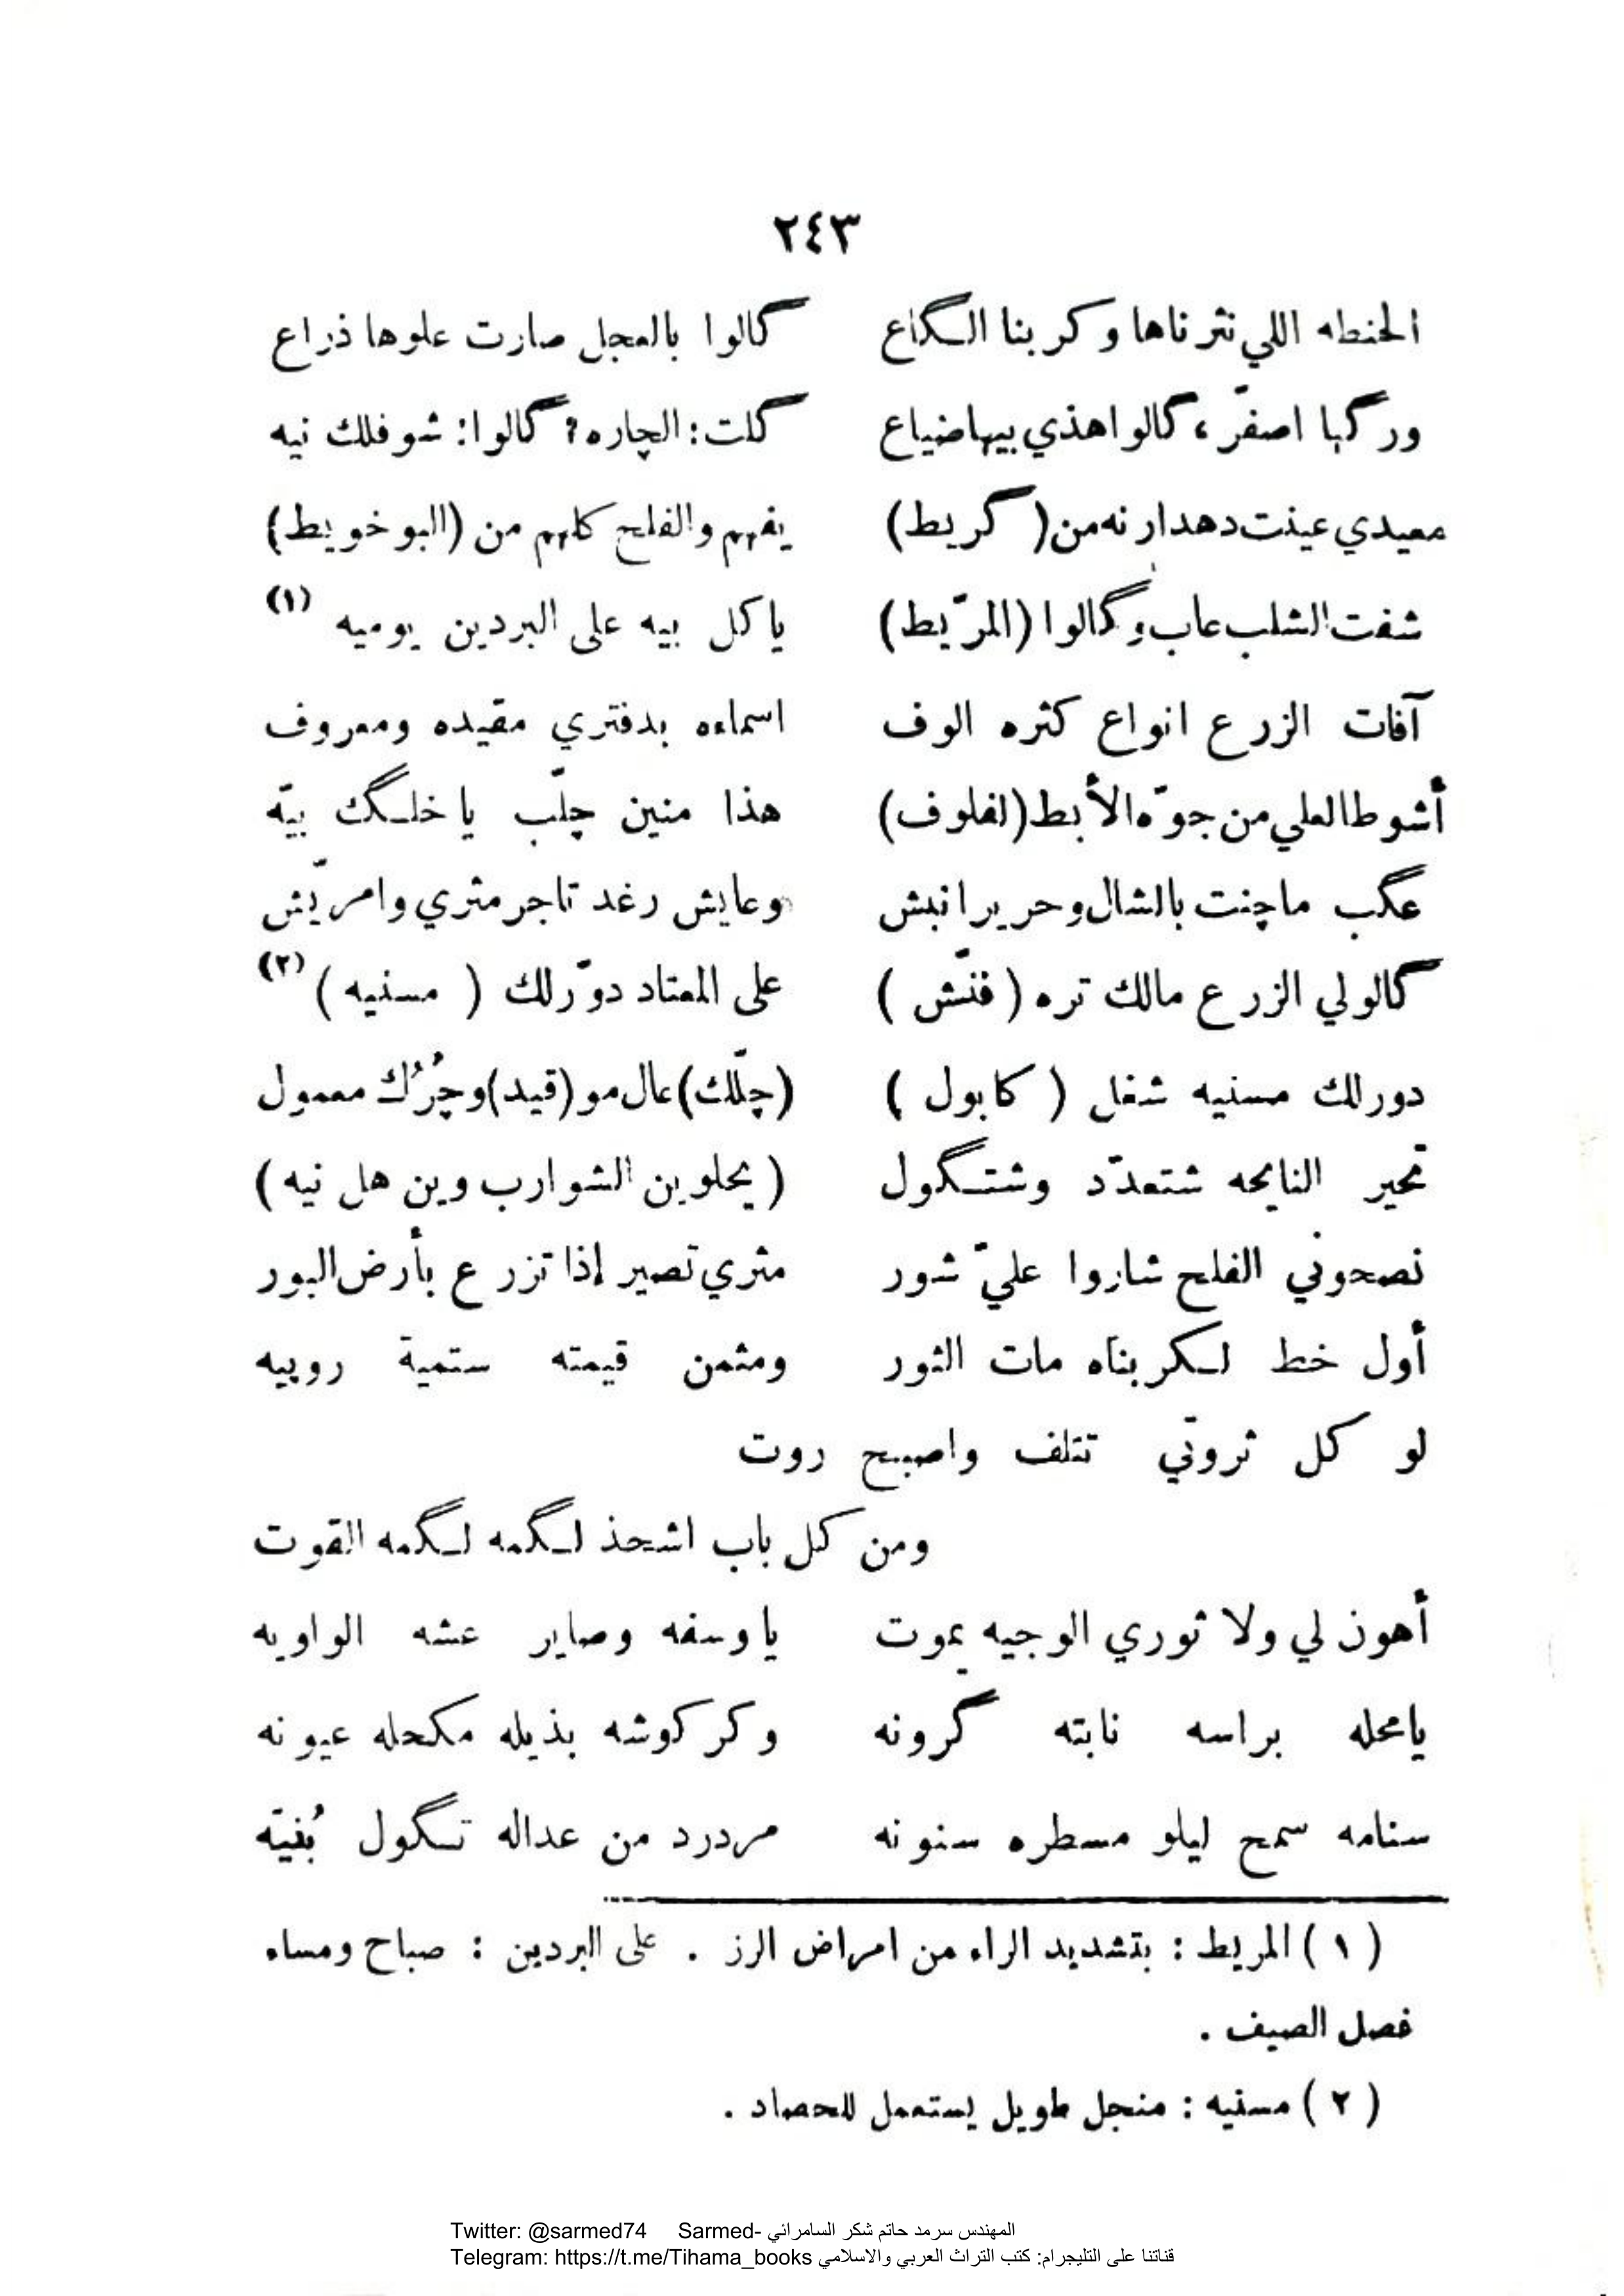 ٢٤٣
الحنطه اللي نثرناها وكربنا الـگاع گالوا بالعجل صارت علوها ذراع
ورگها اصفرّ ، گالوا هذي بيها ضياع گلت : الچاره ? گالوا : شوفلك نيه
معيدي عينت دهدارنه من ( گريط ) يفهم والفلح كلهم من ( البو خويط )
شفت الشلب عاب وگالوا ( المرّيط ) ياكل بيه على البردين يوميه (١)
آفات الزرع انواع كثره الوف اسماءه بدفتري مقيده ومعروف
أشوطا لعلي من جوّه الأبط ( لفلوف ) هذا منين چلّب يا خلـگك بيّه
عگب ماچنت بالشال وحرير انبش وعايش رغد تاجر مثري وامريّش
گالولي الزرع مالك تره ( فنّش ) على المعتاد دوّرلك ( مسنيه ) (٢)
دورلك مسنيه شغل ( كابول ) ( چلّك ) عال مو ( قيد ) وچُرُك معمول
تحير النايحه شتعدّد وشتـگول ( يحلوين الشوارب وين هل نيه )
نصحوني الفلح شاروا عليّ شور مثري تصير إذا تزرع بأرض البور
أول خط لـكربناه مات الثور ومثمن قيمته ستمية روبيه
لو كل ثروتي تتلف واصبح روت
ومن كل باب اشحذ لـگمه لـگمه القوت
أهون لي ولا ثوري الوجيه يموت يا وسفه وصاير عشه الواويه
يامحله براسه نابته گرونه وكركوشه بذيله مكحله عيونه
سنامه سمح ليلو مسطره سنونه مردرد من عداله تـگول بُنيّه
( ١ ) المريط : بتشديد الراء من امراض الرز . على البردين : صباح ومساء
فصل الصيف .
( ٢ ) مسنيه : منجل طويل يستعمل للحصاد .
Twitter: @sarmed74 Sarmed- المهندس سرمد حاتم شكر السامرائي
Telegram: https://t.me/Tihama_books قناتنا على التليجرام: كتب التراث العربي والاسلامي